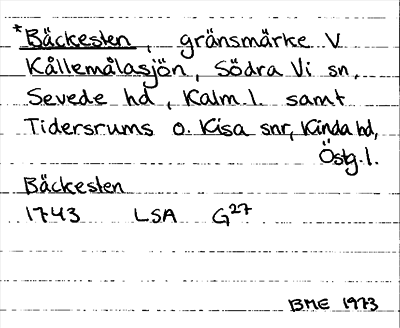 *Bäckesten, gränsmärke V
Kållemålasjön, Södra Vi sn,
Sevede hd, Kalm. l. samt
Tidersrums o. Kisa snr, Kinda hd,
Östg. l.
Bäckesten
1743 LSA G27
BME 1973